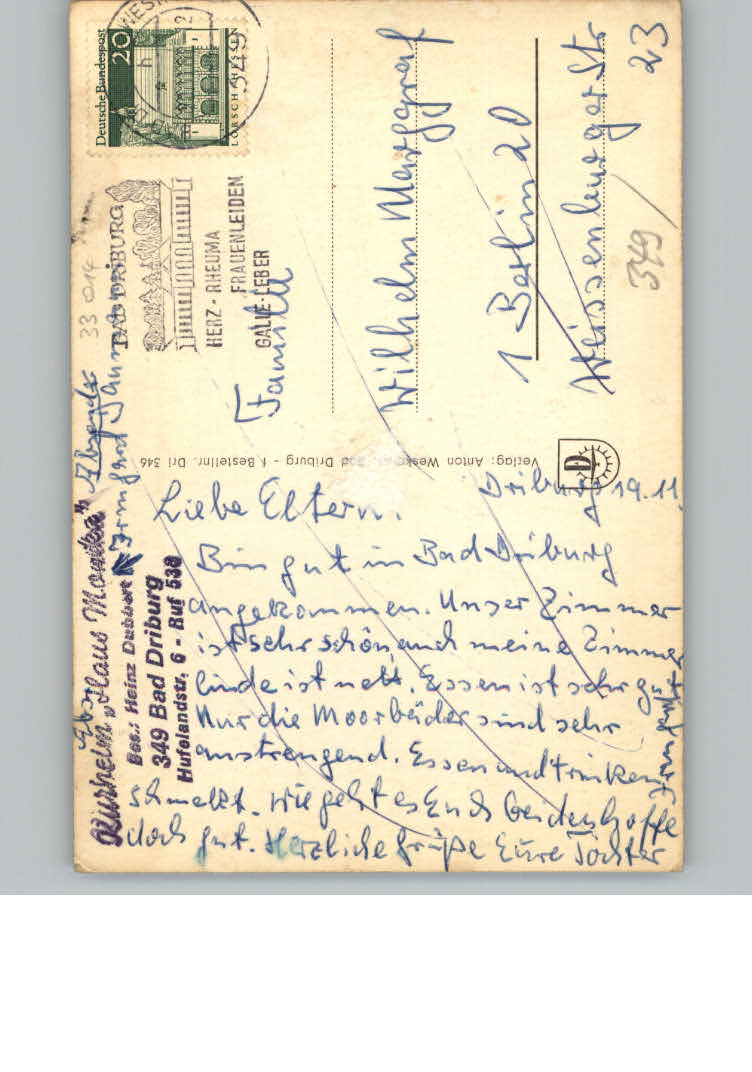 Driburg 19.11.
Liebe Eltern.
Bin gut in Bad Driburg
angekommen. Unser Zimmer
ist sehr schön auch meine Zimmer
linde ist nett. Essen ist sehr gut
Nur die Moorbäder sind sehr
anstrengend. Essen und trinken
schmekt. Wie geht es Euch beiden hoffe
doch gut. Herzliche grüße Eure Tochter
Irmgard
Familie
Wilhelm Marggraf
1 Berlin 20
Weissenburger Str
23
349
Absender
Irmgard
33 014
Kurheim „Haus Monika"
Bes.: Heinz Dubbert
349 Bad Driburg
Hufelandstr. 6 - Ruf 538
Verlag: Anton Bad Driburg - Bestellnr. Dri 346
D
Deutsche Bundespost
20
LORSCH / HESSEN
349
BAD DRIBURG
HERZ - RHEUMA
FRAUENLEIDEN
GALLE-LEBER